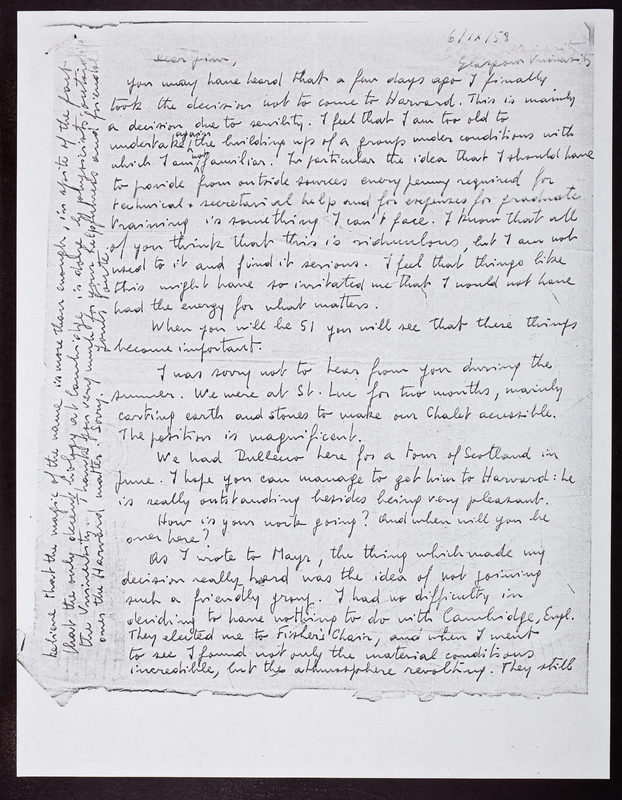 6/IX/58
Glasgow University
Dear Jim,
You may have heard that a few days ago I finally
took the decision not to come to Harvard. This is mainly
a decision due to senility. I feel that I am too old to
undertake again the building up of a group under conditions with
which I am not familiar. In particular the idea that I should have
to provide from outside sources every penny required for
technical & secretarial help and for expenses for graduate
training is something I can't face. I know that all
of you think that this is ridiculous, but I am not
used to it and find it serious. I feel that things like
this might have so irritated me that I would not have
had the energy for what matters.
When you will be 51 you will see that these things
become important.
I was sorry not to hear from you during the
summer. We were at St. Luc for two months, mainly
carting earth and stones to make our Chalet accessible.
The position is magnificent.
We had Dulbecco here for a tour of Scotland in
June. I hope you can manage to get him to Harvard: he
is really outstanding besides being very pleasant.
How is your work going? And when will you be
over here?
As I wrote to Mayr, the thing which made my
decision really hard was the idea of not joining
such a friendly group. I had no difficulty in
deciding to have nothing to do with Cambridge, Engl.
They elected me to Fisher's Chair, and when I went
to see I found not only the material conditions
incredible, but the athmosphere revolting. They still
believe that the magic of the name is more than enough, in spite of the fact
that the only decent biology at Cambridge is done by physicists outside
the University. Thanks very much for your helpfulness and friendship
over the Harvard matter. Sorry. Yours
Ponte